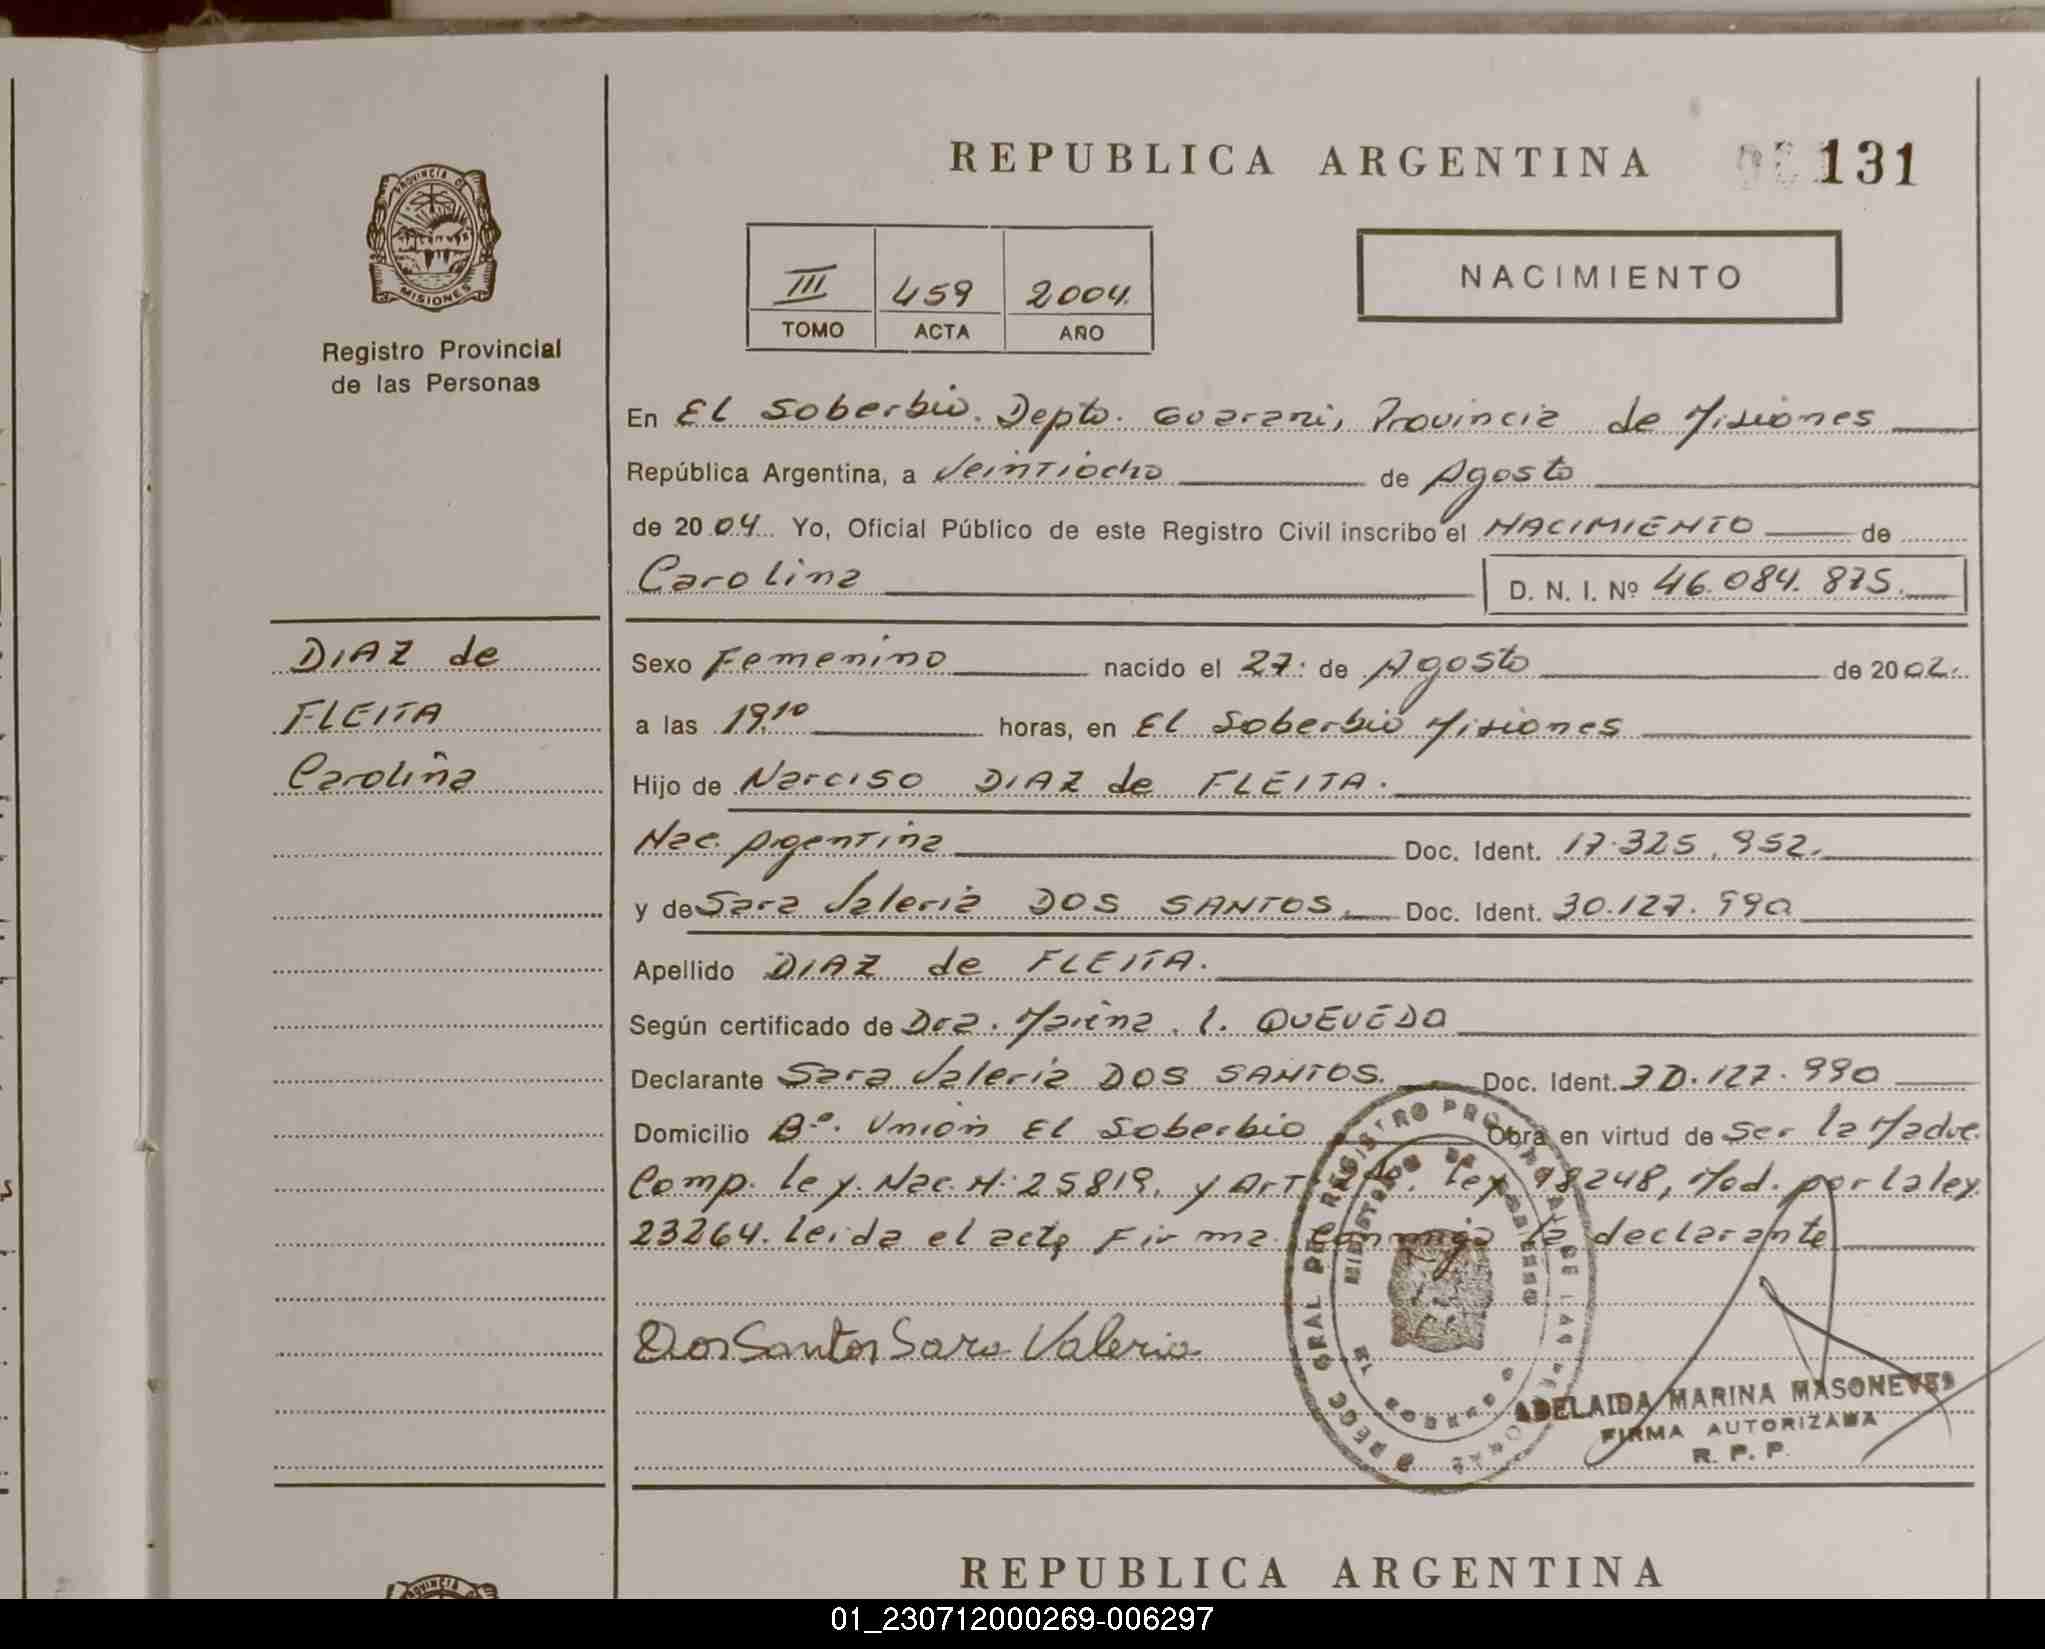 REPUBLICA ARGENTINA
131
PROVINCIA DE
MISIONES
Registro Provincial
de las Personas
III 459 2004.
TOMO ACTA AÑO
NACIMIENTO
En El Soberbio. Depto. Guarani, Provincia de Misiones
República Argentina, a Veintiocho de Agosto
de 2004. Yo, Oficial Público de este Registro Civil inscribo el NACIMIENTO de
Carolina D. N. I. Nº 46.084.875.
DIAZ de
FLEITA
Carolina
Sexo Femenino nacido el 27. de Agosto de 2002.
a las 19,10 horas, en El Soberbio Misiones
Hijo de Narciso DIAZ de FLEITA.
Nac. Argentina Doc. Ident. 17.325.952.
y de Sara Valeria DOS SANTOS. Doc. Ident. 30.127.990
Apellido DIAZ de FLEITA.
Según certificado de Dra. Marina. I. QUEVEDO
Declarante Sara Valeria DOS SANTOS. Doc. Ident. 30.127.990
Domicilio Bº. Union El Soberbio Obra en virtud de ser la Madre.
Comp. ley. Nac. N: 25819. y Art. ley 18248, Mod. por la ley.
23264. leida el acta Firma Conmigo la declarante
Dos Santos Sara Valeria
ADELAIDA MARINA MASONEVES
FIRMA AUTORIZADA
R. P. P.
REPUBLICA ARGENTINA
PROVINCIA DE
01_230712000269-006297